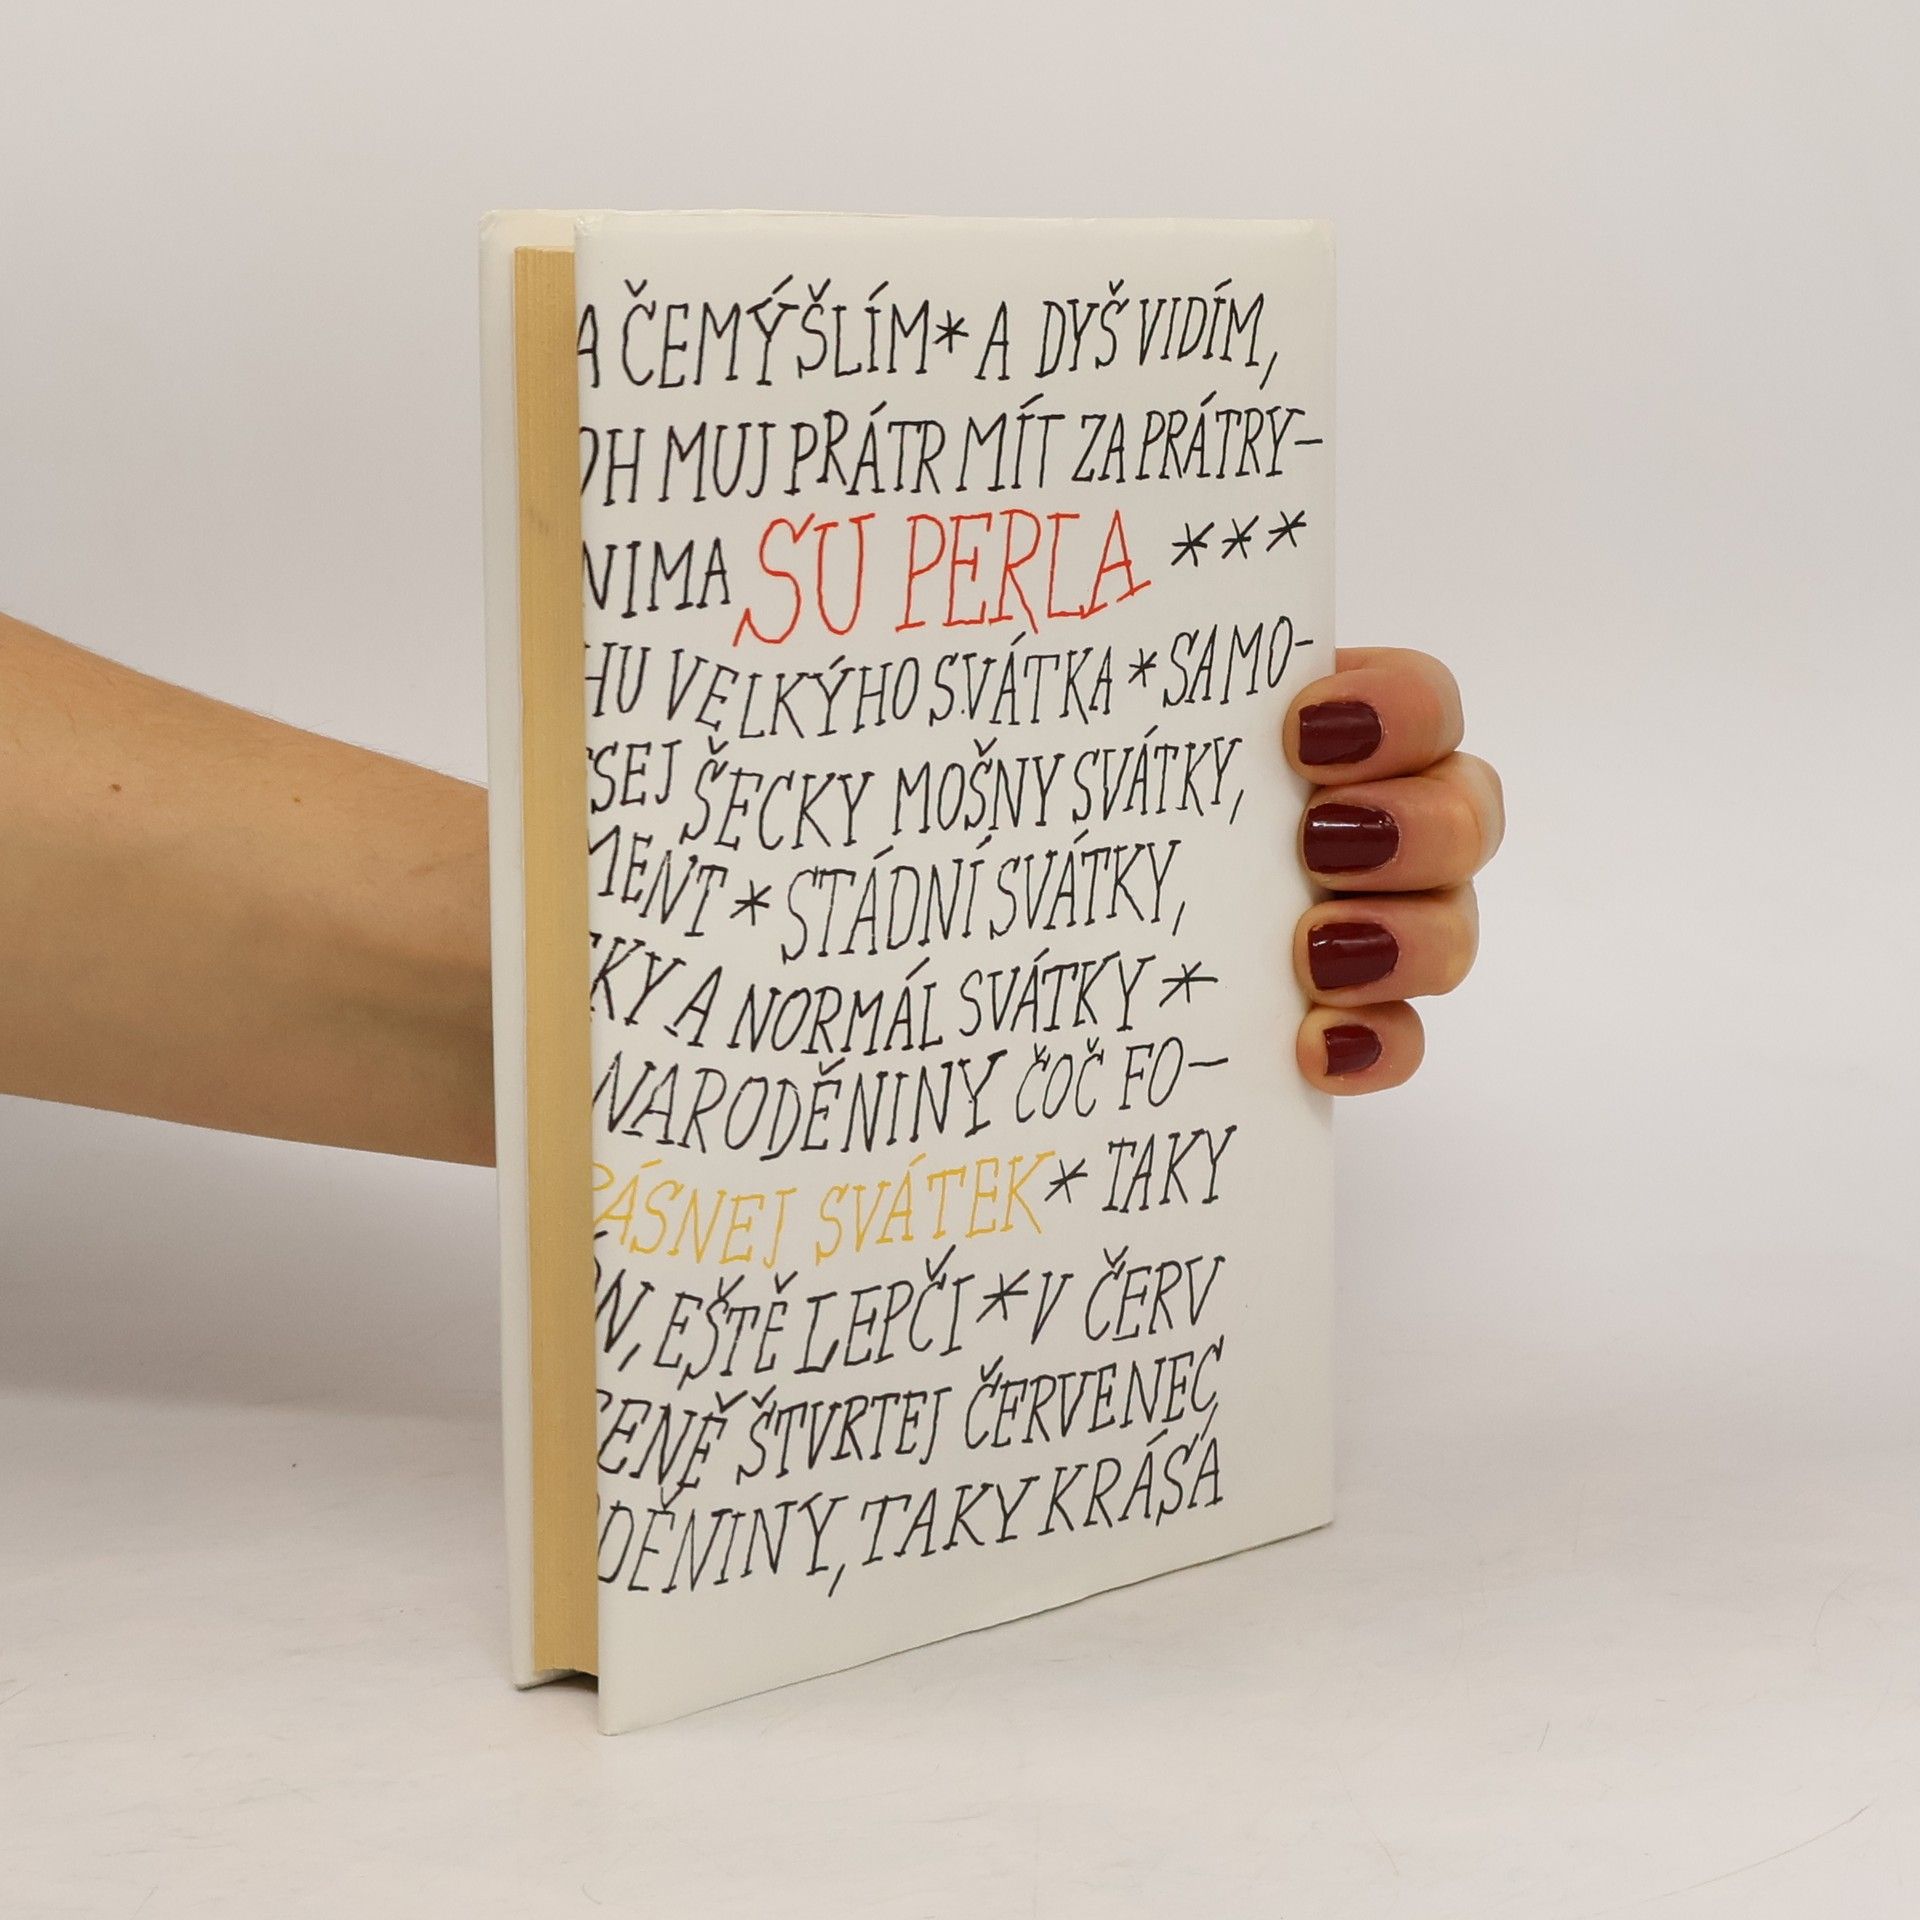 A ČEMÝŠLÍM * A DYŠ VIDÍM,
MUJ PRÁTR MÍT ZA PRÁTRY-
NIMA SU PERLA ***
HU VELKÝHO SVÁTKA * SAMO-
SEJ ŠECKY MOŠNY SVÁTKY,
MENT * STÁDNÍ SVÁTKY,
KY A NORMÁL SVÁTKY *
NARODĚNINY ČOČ FO-
RÁSNEJ SVÁTEK * TAKY
N, EŠTĚ LEPČI * V ČERV
ENĚ ŠTVRTEJ ČERVENEC,
DĚNINY, TAKY KRÁSÁ